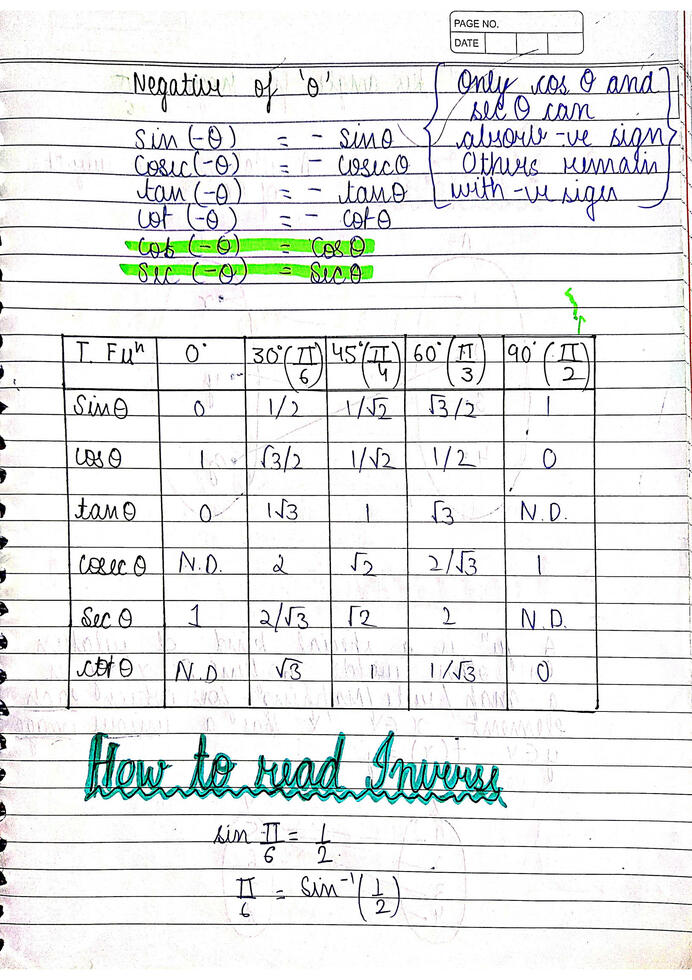 PAGE NO.
DATE
Negative of 'θ'
sin (-θ) = - sinθ
Cosec(-θ) = - cosecθ
tan (-θ) = - tanθ
cot (-θ) = - cotθ
Cos (-θ) = Cosθ
Sec (-θ) = Secθ
{Only cos θ and
sec θ can
absorb -ve sign
Others remain
with -ve sign}
T. Fuⁿ 0° 30°(π/6) 45°(π/4) 60°(π/3) 90°(π/2)
Sinθ 0 1/2 1/√2 √3/2 1
cosθ 1 √3/2 1/√2 1/2 0
tanθ 0 1√3 1 √3 N.D.
Cosec θ N.D. 2 √2 2/√3 1
Sec θ 1 2/√3 √2 2 N.D.
cotθ N.D √3 1 1/√3 0
How to read Inverse
sin π/6 = 1/2
π/6 = Sin⁻¹(1/2)